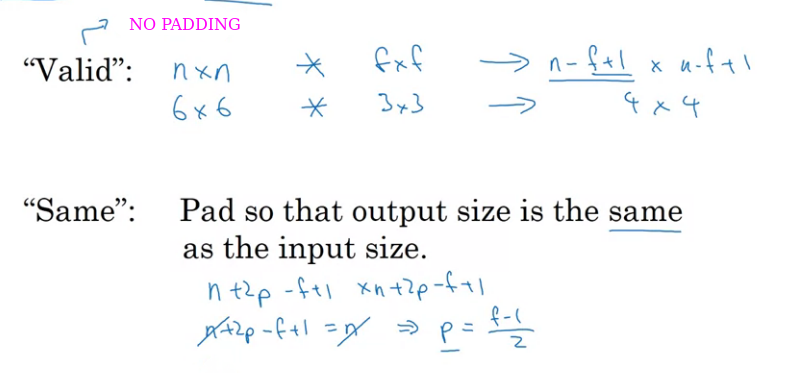 NO PADDING
“Valid”: n x n * f x f → n - f + 1 x n - f + 1
6 x 6 * 3 x 3 → 4 x 4
“Same”: Pad so that output size is the same
as the input size.
n + 2p - f + 1 x n + 2p - f + 1
n + 2p - f + 1 = n ⇒ p = f - 1 / 2